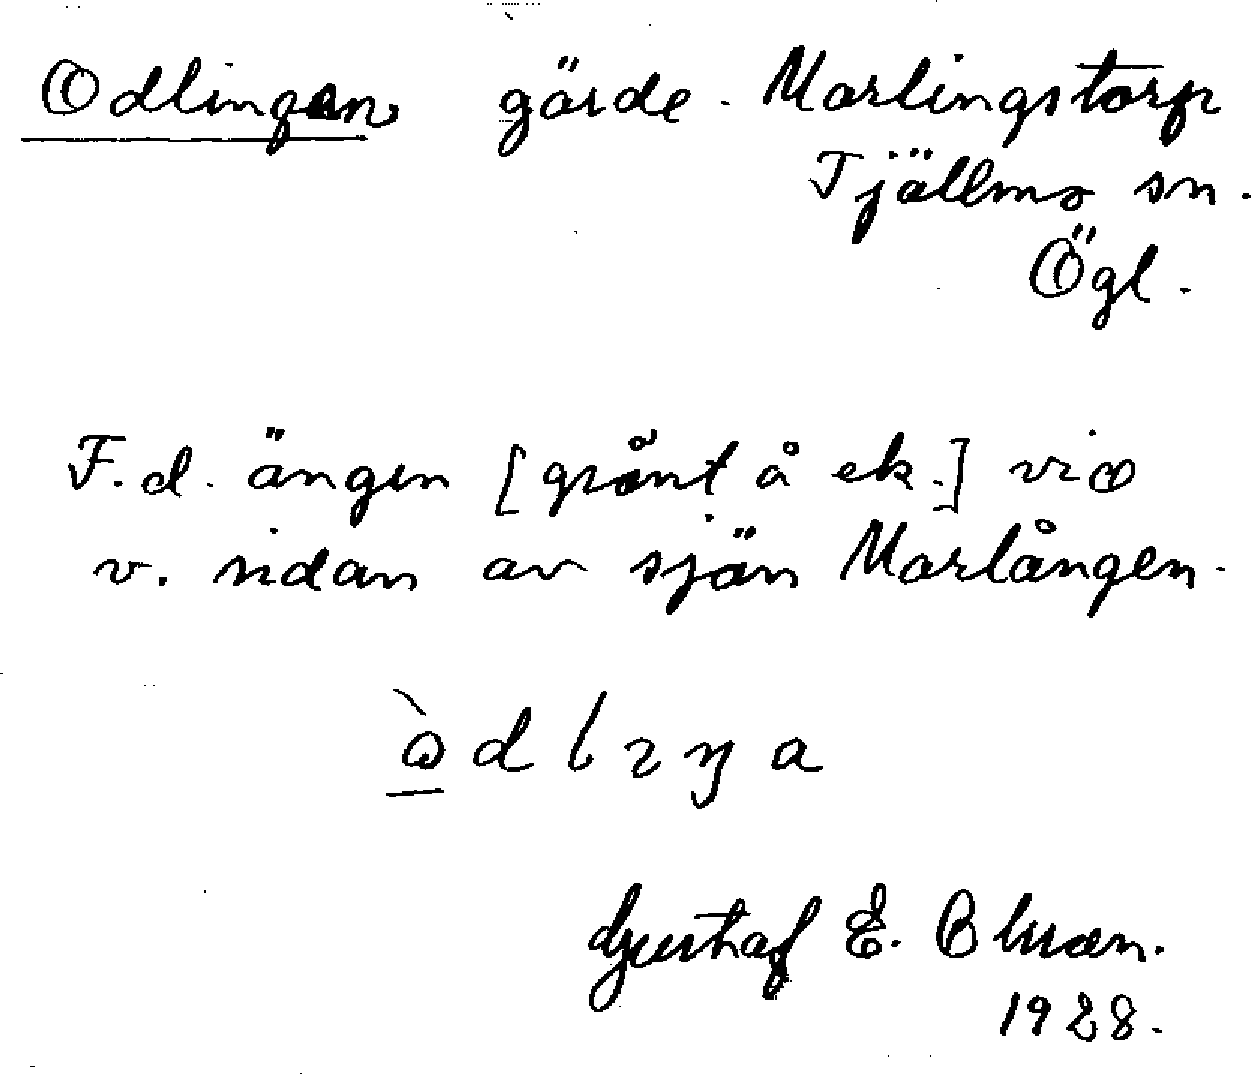 Odlingen gärde. Marlingstorp
Tjällmo sn.
Ögl.
F.d. ängen [grånt å ek.] vid
v. sidan av sjön Marlången.
Gustaf E. Bluan.
1928.